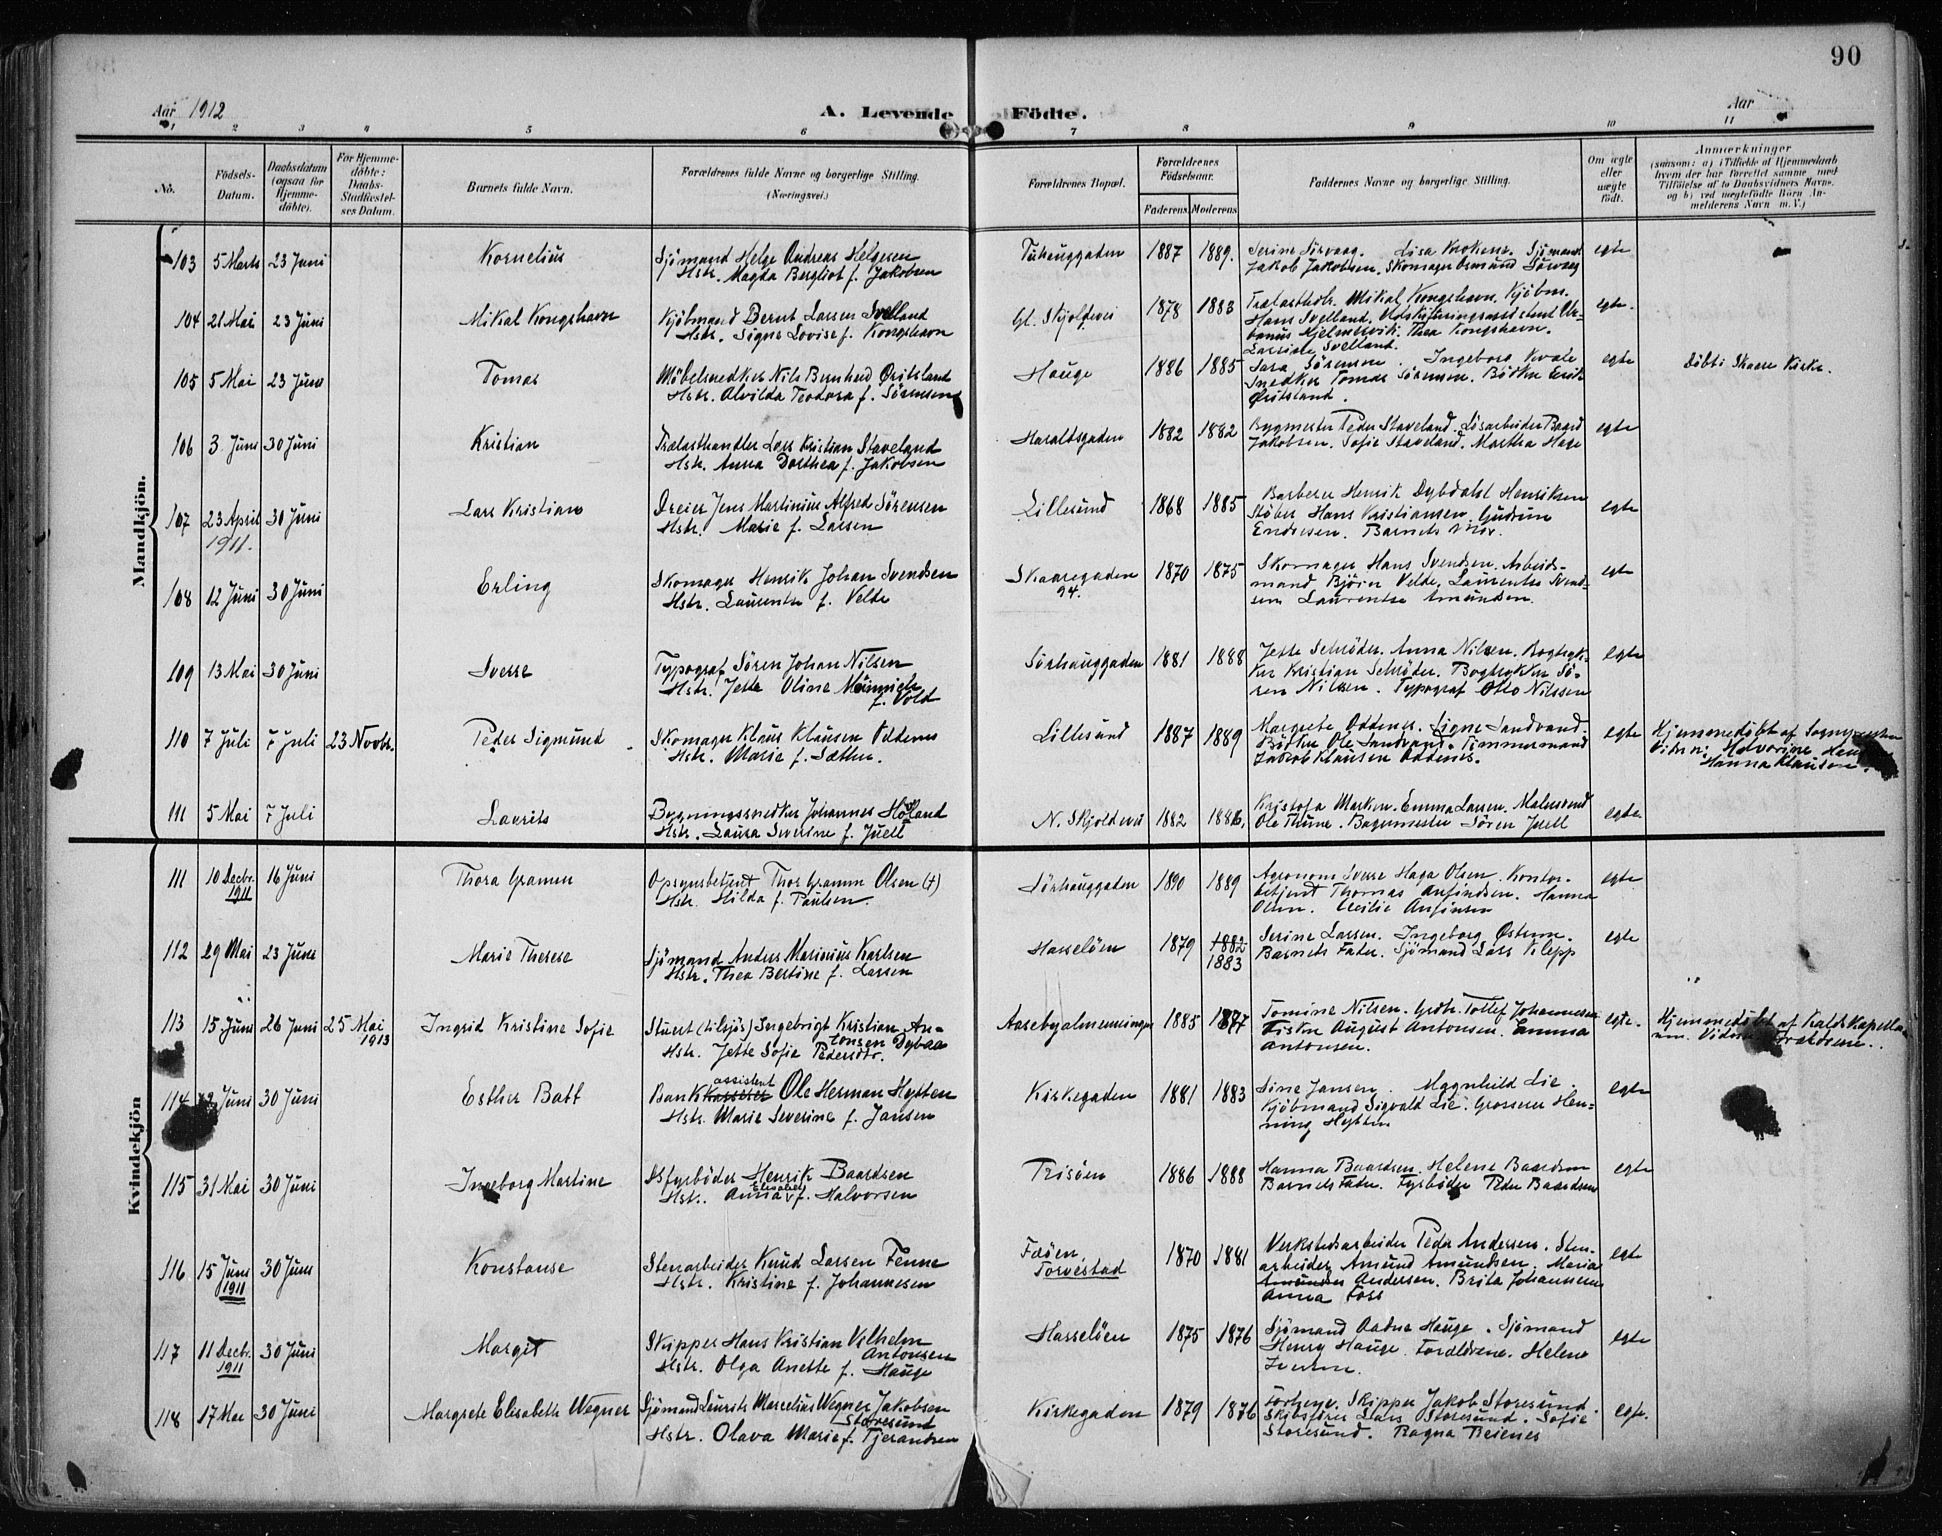 90
Aar 1912
A. Levende Födte.
Aar
1 2 3 4 5 6 7 8 9 10 11
No.
Födsels-
Datum.
Daabsdatum
(ogsaa for
Hjemme-
döbte).
For Hjemme-
döbte:
Daabs-
Stadfæstel-
ses Datum.
Barnets fulde Navn.
Forældrenes fulde Navne og borgerlige Stilling.
(Næringsvei.)
Forældrenes Bopæl.
Forældrenes
Födselsaar.
Faderens
Moderens
Faddernes Navne og borgerlige Stilling.
Om ægte
eller
uægte
födt.
Anmærkninger
(saasom: a) i Tilfælde af Hjemmedaab
hvem der har forrettet samme med
Tilföielse af to Daabsvidners Navne.
og b) ved uægtefödte Börn An-
melderens Navn m. V.)
Mandkjön.
103 5 Marts 23 Juni Kornelius
Sjömand Helge Andreas Helgesen
Hstr. Magda Bergliot f. Jakobsen
1887 1889.
Serine Sörvaag. Lisa Krokenes. Sjömand
Jakob Jakobsen. Skomager Osmund Sörvaag
egte
104 21 Mai 23 Juni Mikal Kongshavn
Kjöbmand Bernt Larsen Svelland
Hstr. Signe Lovise f. Kongshavn
Gl. Skjoldvei 1878 1883
Trælasth. Mikal Kongshavn. Kjöbm.
Hans Svelland,
Thea Kongshavn.
Svelland.
egte.
105 5 Mai 23 Juni Tomas
Möbelsnedker Nils Bernhard Öritsland
Hstr. Alvilda Teodora f. Sörensen
Hauge 1886 1885
Sara Sörensen. Ingeborg Kvale
Snedker Tomas Sörensen. Bödker Erik
Öritsland.
egte
Döbt i Skaare Kirke.
106 3 Juni 30 Juni Kristian
Trælasthandler Lars Kristian Staveland
Hstr. Anna Dorthea f. Jakobsen
Haraldsgaden 1882 1882
Bygmester Peder Staveland.
Jakobsen. Sofie Staveland. Martha Hage
egte
107 23 April 30 Juni Lars Kristian
1911.
Dreier Jens Martinius Alfred Sörensen
Hstr. Marie f. Larsen
Lillesund 1868 1885
Barberer Henrik Dybdahl Henriksen
Stöber Hans Kristiansen. Gudrun
Endresen. Barnets Mor.
egte
108 12 Juni 30 Juni Erling
Skomager Henrik Johan Svendsen
Hstr. Laurentse f. Velde
Skaaregaden
94.
1870 1875
Skomager Hans Svendsen. Arbeids-
mand Björn Velde, Laurentse Svend-
sen Laurentse Amundsen.
egte
109 13 Mai 30 Juni Sverre
Typograf Sören Johan Nilsen
Hstr. Jette Oline Meinich
f. Vold
Sörhauggaden 1881 1888
Jette Schröder. Anna Nilsen. Bogtryk-
ker Kristian Schröder. Bogtrykker Sö-
ren Nilsen. Typograf Otto Nilssen
egte
110 7 Juli 7 Juli 23 Novbr. Peder Sigmund
Skomager Klaus Klausen Oddenes
Hstr. Marie f. Sæther.
Lillesund 1887 1889
Margrete Oddenes. Signe Sandvand.
Bödker Ole Sandvand. Tömmermand
Jakob Klausen Oddenes.
egte
Hjemmedöbt af Sognepresten
Vidn: Halvorine
Hanna Klausen.
111 5 Mai 7 Juli Laurits
Bygningssnedker Johannes Höland
Hstr. Laura Severine f. Juell
N. Skjoldvei 1882 1886.
Emma Larsen.
Ole Thune. Bygmester Sören Juell
egte.
Kvindekjön
111 10 Decbr. 16 Juni Thora Gramm
1911
Opsynsbetjent Thor Gramm Olsen (†)
Hstr. Hilda f. Paulsen.
Sörhauggaden 1890 1889
Agronom Sverre Haga Olsen. Kontor-
betjent Thomas Anfindsen. Hanna
Olsen. Cecilie Anfinsen
egte
112 29 Mai 23 Juni Marie Therese
Sjömand Anders Marinius Karlsen
Hstr. Thea Bertine f. Larsen
Hasselöen 1879 1882
1883
Serine Larsen. Ingeborg Östrem.
Barnets Fader. Sjömand Lars Klepp
egte
113 15 Juni 26 Juni 25 Mai Ingrid Kristine Sofie
1913
Stuert (tilsjös) Ingebrigt Kristian An-
tonsen Dybaa
Hstr. Jette Sofie Pedersdtr.
Aasebyalmenningen 1885 1887
Tomine Nilsen. Grdbr. Tollef Johannessen
Fisker August Antonsen. Emma
Antonsen.
egte.
Hjemmedöbt af Kald. Kapellan
Vidner: Forældrene.
114 12 Juni 30 Juni Esther Batt
assistent
Bankkasserer Ole Herman Hytten
Hstr. Marie Severine f. Jansen
Kirkegaden 1881 1883
Sine Jansen. Magnhild Lie.
Kjöbmand Sigvald Lie. Grosserer Hen-
ning Hytten
egte
115 31 Mai 30 Juni Ingeborg Martine
Fyrböder Henrik Baardsen
Elisabet
Hstr. Anna f. Halvorsen
Risöen 1886 1888
Hanna Baardsen. Helene Baardsen
Barnets Fader. Fyrböder Peder Baardsen
egte
116 15 Juni 30 Juni Konstanse
1911
Stenarbeider Knud Larsen Fenne
Hstr. Kristine f. Johannesen
Fæöen
Torvestad
1870 1881
Verkstedsarbeider Peder Andersen. Sten-
arbeider Amund Amundsen. Maria
Amundsen Andersen. Brita Johannesen
Anna Foss
egte
117 11 Decbr. 30 Juni Margit
1911
Skipper Hans Kristian Vilhelm
Antonsen
Hstr. Olga Anette f. Hauge
Hasselöen 1875 1876
Sjömand Aadne Hauge. Sjömand
Henry Hauge. Forældrene. Helene
egte
118 17 Mai 30 Juni Margrete Elisabeth Wegner
Sjömand Laurits Marcelius Wegner Jakobsen
Storesund
Hstr. Olava Marie f. Tjerandsen
Kirkegaden 1879 1876
Forældrene. Skipper Jakob Storesund.
Skibsförer Lars Storesund. Sofie
Storesund. Ragna Reienes
egte.